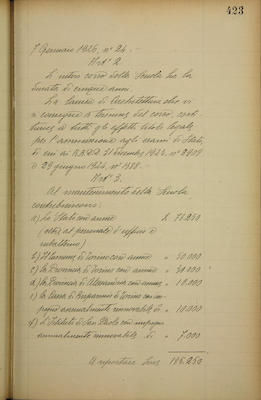 423
7 Gennaio 1926, n° 24. -
Art° 2.
L'intero corso della Scuola ha la
durata di cinque anni.
La laurea di Architettura che vi
si consegue a termine del corso, costi-
tuisce a tutti gli effetti titolo legale
per l'ammissione agli esami di Stato,
di cui ai R.R.D.D. 31 dicembre 1923, n° 2909
e 29 giugno 1924, n° 1188. -
Art° 3.
Al mantenimento della Scuola
contribuiscono:
a) Lo Stato con annue £ 78.250
(oltre al personale di ufficio e
subalterno)
b) Il Comune di Torino con annue " 50.000
c) La Provincia di Torino con annue " 30.000
d) La Provincia di Alessandria con annue " 10.000
e) La Cassa di Risparmio di Torino con im-
pegno annualmente rinnovabile di " 10.000
f) L'Istituto di San Paolo con impegno
annualmente rinnovabile di " 7.000
A riportarsi Lire 185.250